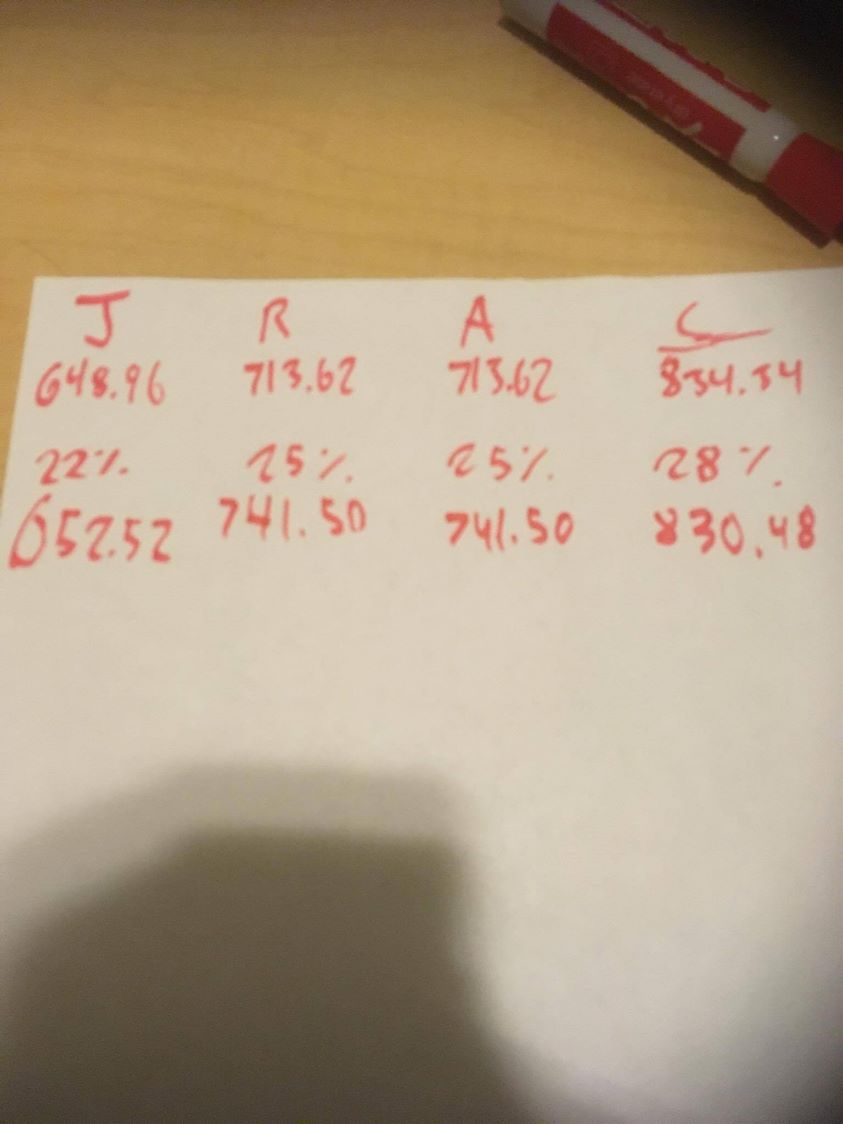 J R A C
648.96 713.62 713.62 834.34
22% 25% 25% 28%
652.52 741.50 741.50 830.48